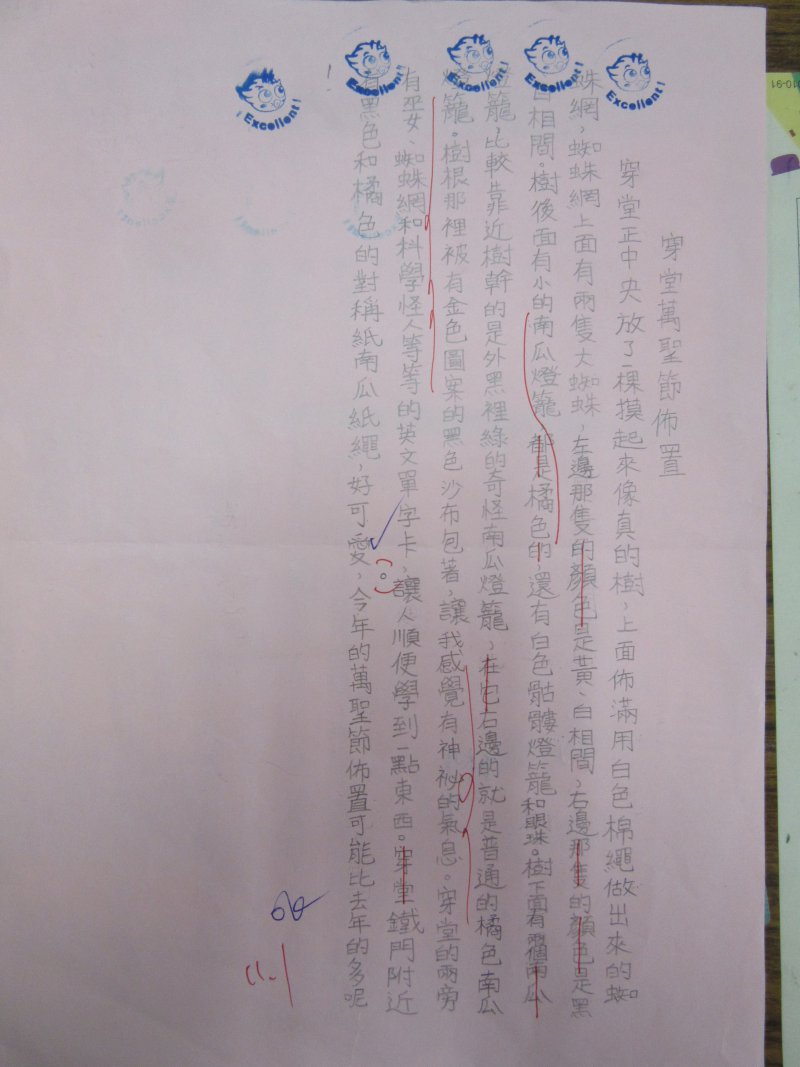 穿堂萬聖節佈置
穿堂正中央放了一棵摸起來像真的樹，上面佈滿用白色棉繩做出來的蜘
蛛網，蜘蛛網上面有兩隻大蜘蛛，左邊那隻的顏色是黃、白相間，右邊那隻的顏色是黑
白相間。樹後面有小的南瓜燈籠都是橘色的，還有白色骷髏燈籠和眼珠。樹下面有兩個南瓜
燈籠，比較靠近樹幹的是外黑裡綠的奇怪南瓜燈籠，在它右邊的就是普通的橘色南瓜
燈籠。樹根那裡被有金色圖案的黑色沙布包著，讓我感覺有神祕的氣息。穿堂的兩旁
有巫女、蜘蛛網和科學怪人等等的英文單字卡，讓人順便學到一點東西。穿堂鐵門附近
有黑色和橘色的對稱紙南瓜紙繩，好可愛，今年的萬聖節佈置可能比去年的多呢
！
(。)
Excellent!
Excellent!
Excellent!
Excellent!
Excellent!
11.1